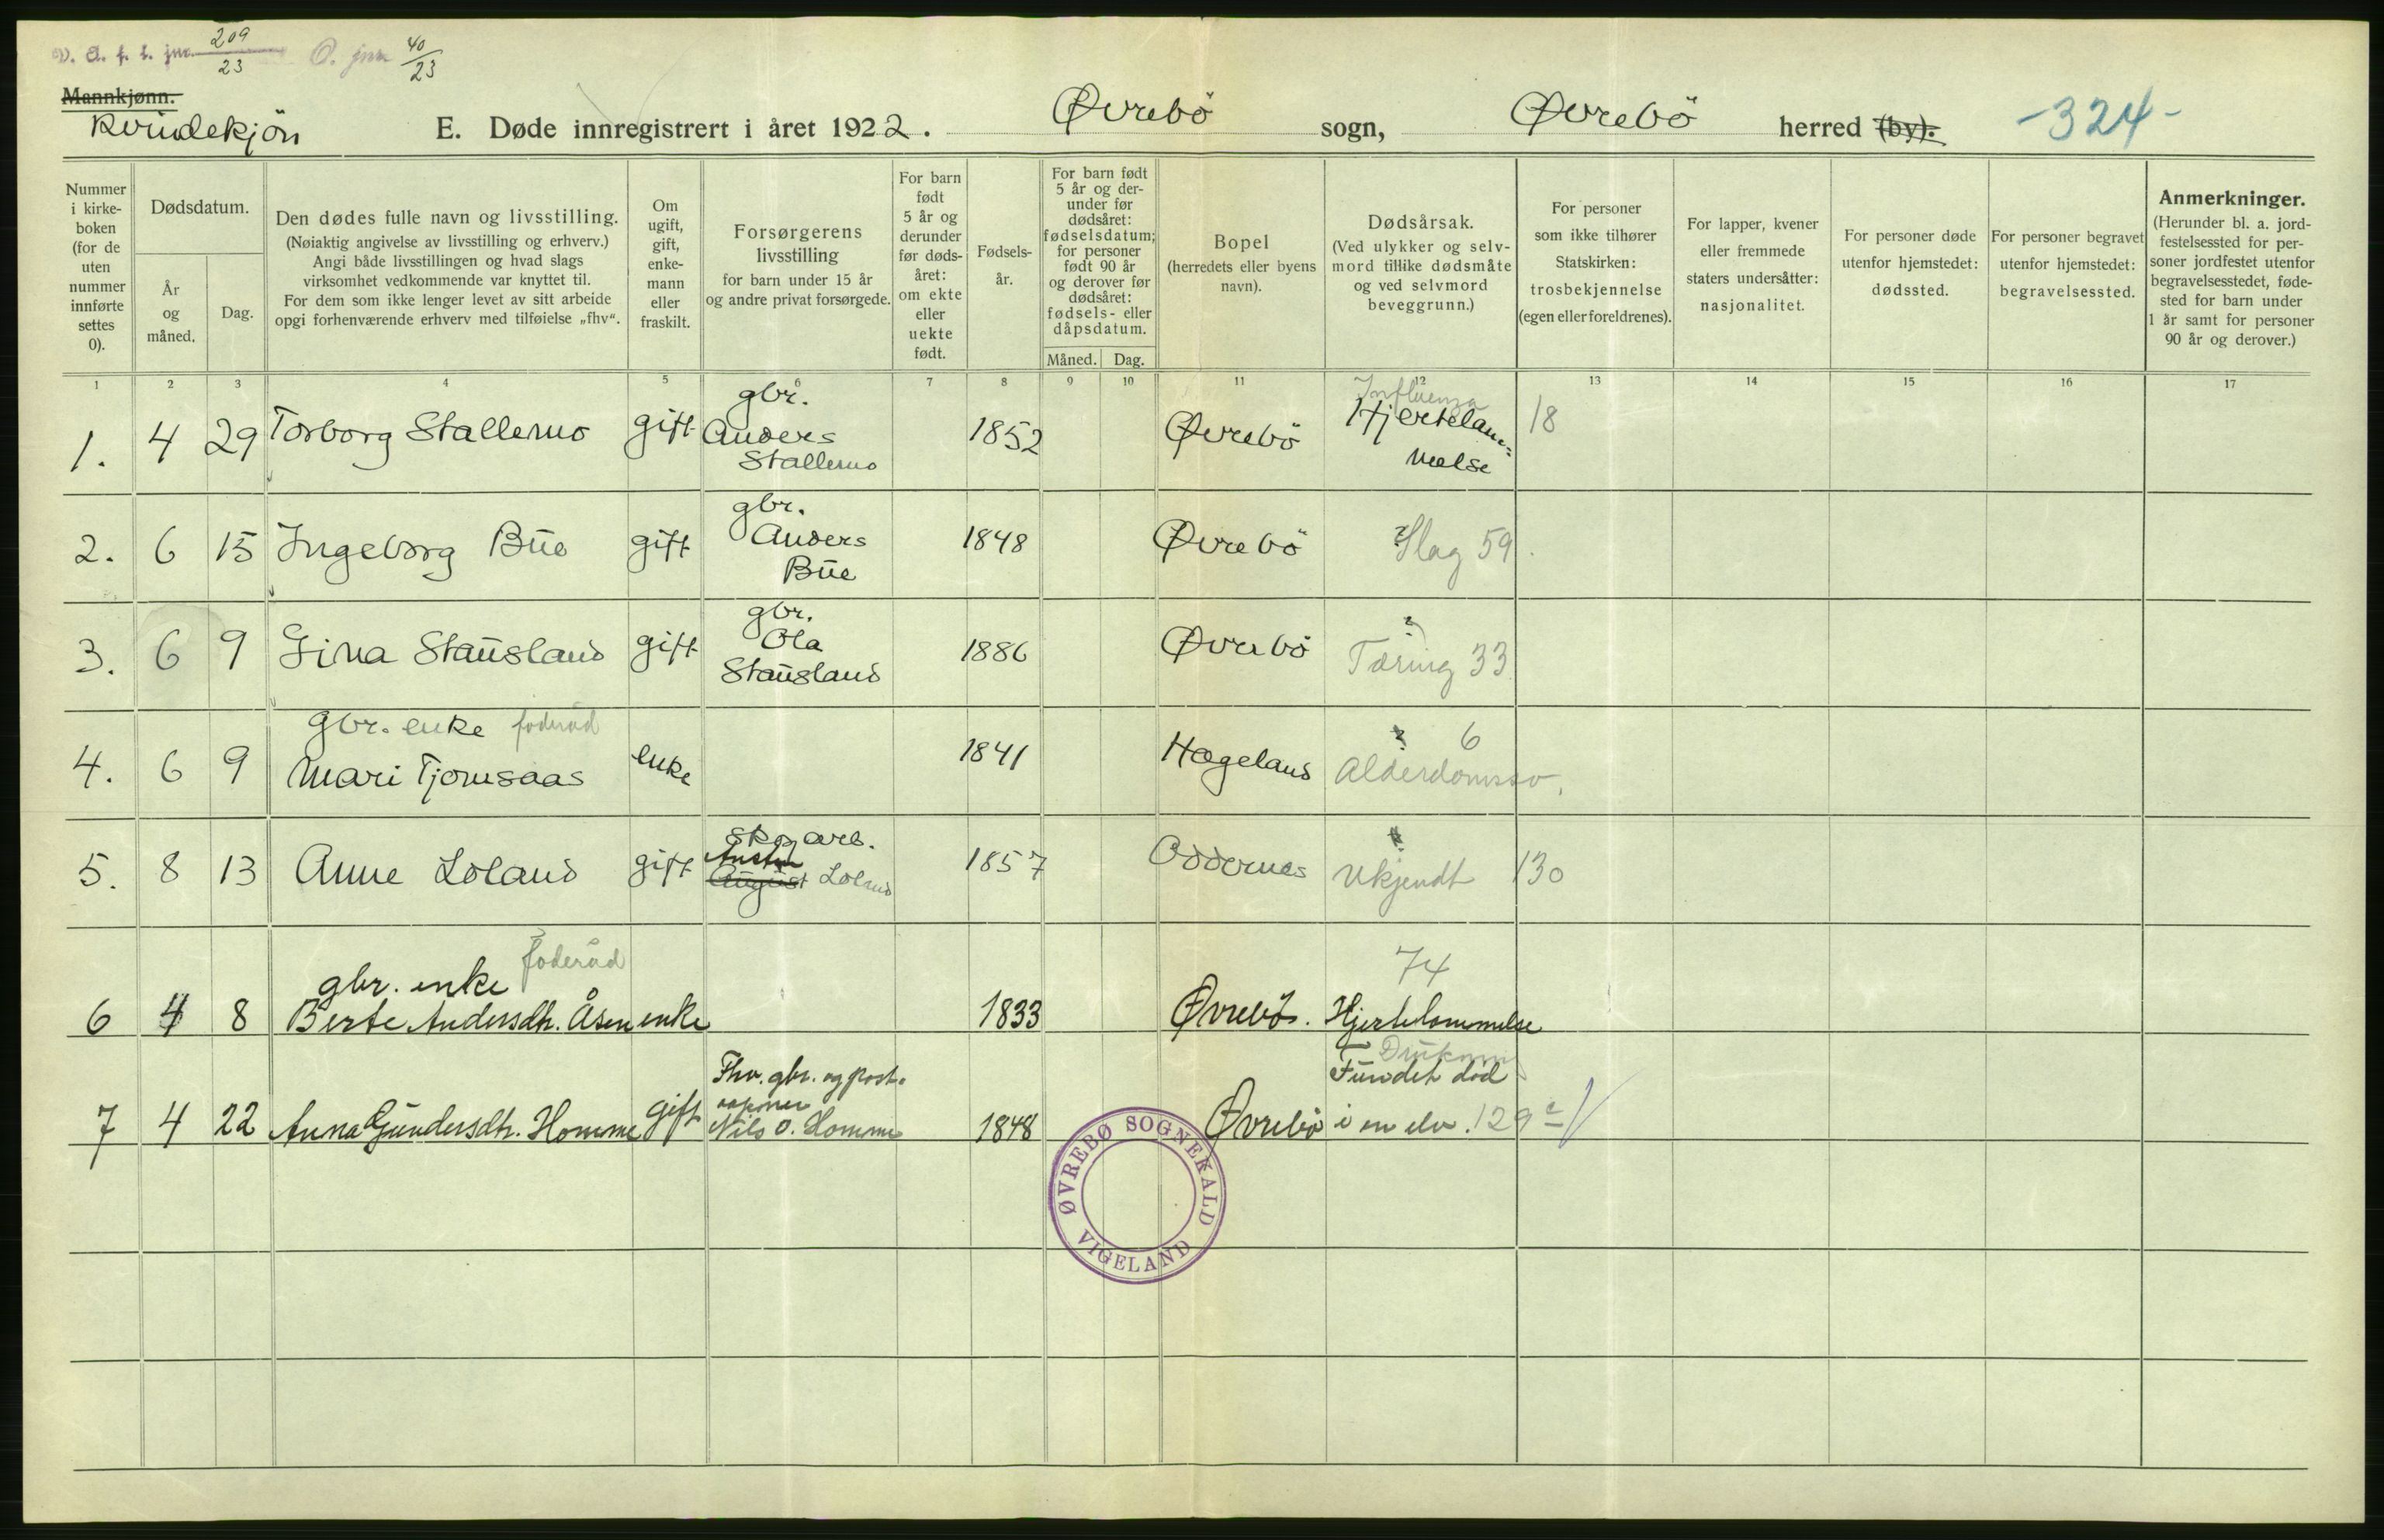 D. A. f. t. jnr. 209/23 O. jnr 40/23
Mannkjønn.
Kvindekjön
E. Døde innregistrert i året 1922. Øvrebö sogn, Øvrebö herred (by). -324-
Nummer i kirkeboken (for de uten nummer innførte settes 0).
Dødsdatum.
År og måned.
Dag.
Den dødes fulle navn og livsstilling.
(Nøiaktig angivelse av livsstilling og erhverv.)
Angi både livsstillingen og hvad slags
virksomhet vedkommende var knyttet til.
For dem som ikke lenger levet av sitt arbeide
opgi forhenværende erhverv med tilføielse „fhv“.
Om ugift, gift, enkemann eller fraskilt.
Forsørgerens
livsstilling
for barn under 15 år
og andre privat forsørgede.
For barn født 5 år og derunder før dødsåret: om ekte eller uekte født.
Fødselsår.
For barn født 5 år og derunder før dødsåret: fødselsdatum; for personer født 90 år og derover før dødsåret: fødsels- eller dåpsdatum.
Måned. Dag.
Bopel
(herredets eller byens
navn).
Dødsårsak.
(Ved ulykker og selvmord tillike dødsmåte og ved selvmord beveggrunn.)
For personer
som ikke tilhører
Statskirken:
trosbekjennelse
(egen eller foreldrenes).
For lapper, kvener
eller fremmede
staters undersåtter:
nasjonalitet.
For personer døde
utenfor hjemstedet:
dødssted.
For personer begravet
utenfor hjemstedet:
begravelsessted.
Anmerkninger.
(Herunder bl. a. jordfestelsessted for personer jordfestet utenfor begravelsesstedet, fødested for barn under 1 år samt for personer 90 år og derover.)
1 2 3 4 5 6 7 8 9 10 11 12 13 14 15 16 17
1. 4 29 Torborg Stallemo gift gbr. Anders Stallemo 1852 Øvrebö Influenza Hjertelammelse 18
2. 6 15 Ingeborg Büe gift gbr. Anders Büe 1848 Øvrebö Slag 59.
3. 6 9 Gina Stausland gift gbr. Ola Stausland 1886 Øvrebö ? Tæring 33
4. 6 9 gbr. enke foderåd Mari Tjomsaas enke 1841 Hægeland ? 6 Alderdomssv.
5. 8 13 Anne Loland gift skogarb. Austen August Loland 1857 Oddernes Ukjendt 130
6 4 8 gbr. enke foderåd Berte Andersdtr. Åsen enke 1833 Øvrebö. 74 Hjertelammelse
7 4 22 Anna Gundersdtr. Homme gift Fhv. gbr. og post- Nils O. Homme 1848 Øvrebö Fundet död i en elv. 129
ØVREBØ SOGNEKALD
VIGELAND